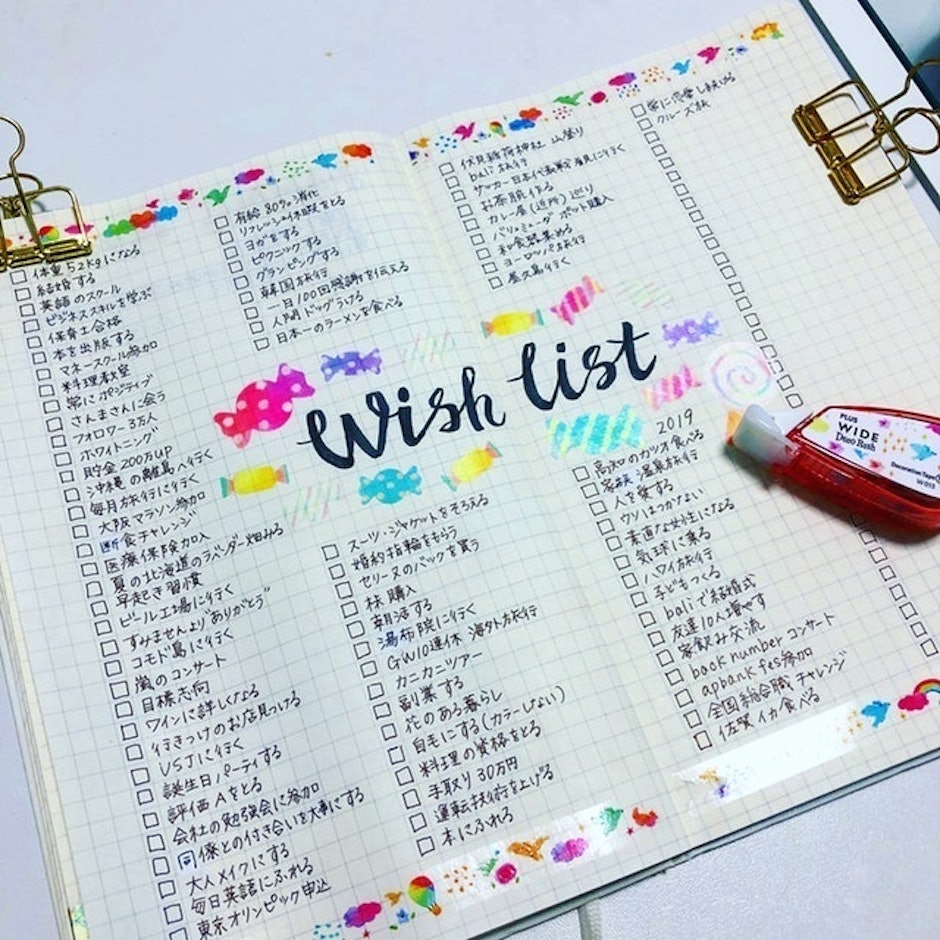 体重52kgになる
結婚する
英語のスクール
ビジネススキルを学ぶ
保育士合格
本を出版する
マネースクール参加
料理教室
常にポジティブ
さんまさんに会う
フォロワー3万人
ホワイトニング
貯金200万up
沖縄の離島へ行く
毎月旅行に行く
大阪マラソン参加
断食チャレンジ
医療保険加入
夏の北海道のラベンダー畑みる
早起き習慣
ビール工場に行く
すみませんより"ありがとう"
コモド島に行く
嵐のコンサート
目標志向
ワインに詳しくなる
行きつけのお店見つける
USJに行く
誕生日パーティする
評価Aをとる
会社の勉強会に参加
同僚との付き合いを大事にする
大人メイクにする
毎日英語にふれる
東京オリンピック申込
有給80%消化
リフレッシュ休暇をとる
ヨガをする
ピクニックする
グランピングする
韓国旅行
一日100回感謝を伝える
人間ドックうける
日本一のラーメンを食べる
Wish list
スーツ・ジャケットをそろえる
婚約指輪をもらう
セリーヌのバックを買う
株購入
朝活する
湯布院に行く
GW10連休 海外旅行
カニカニツアー
副業する
花のある暮らし
自毛にする(カラーしない)
料理の資格をとる
手取り30万円
運転技術を上げる
本にふれる
伏見稲荷神社 山登り
bali 旅行
サッカー日本代表戦 見に行く
お茶碗作る
カレー屋(近所)巡り
バーミキュラ ポット購入
和食器集める
ヨーロッパ旅行
屋久島行く
常に恋愛し続ける
クルーズ旅
2019
高知のカツオ食べる
家族 温泉旅行
人を愛する
ウソはつかない
素直な女性になる
気球に乗る
ハワイ旅行
子どもつくる
baliで結婚式
友達10人増やす
家飲み交流
back number コンサート
apbank fes参加
全国総合職チャレンジ
佐賀 イカ食べる
PLUS
WIDE
Deco Rush
Decoration Tape